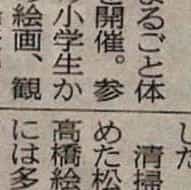 まるごと体
と開催。参
小学生か
絵画、観
した
清掃
めた松
高橋絵
には多